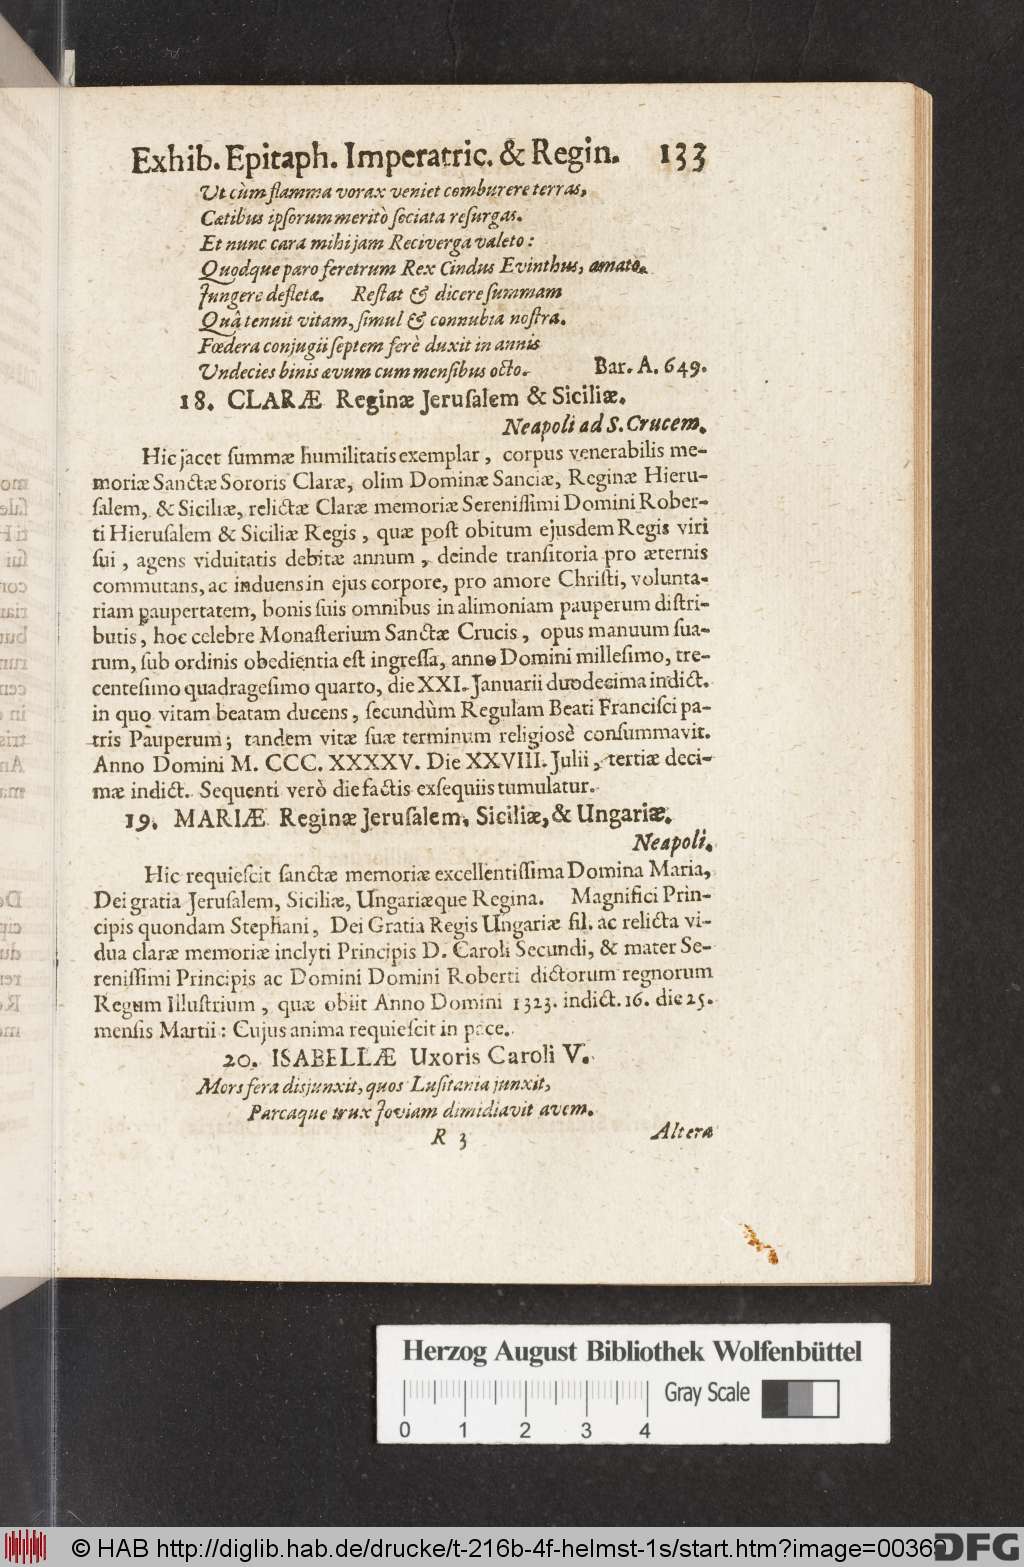 Exhib. Epitaph. Imperatric. & Regin. 133
Ut cùm flamma vorax veniet comburere terras,
Cætibus ipsorum meritò sociata resurgas.
Et nunc cara mihi jam Reciverga valeto:
Quodque paro feretrum Rex Cindus Evinthus, amato.
Jungere defleta. Restat & dicere summam
Quâ tenuit vitam, simul & connubia nostra.
Fœdera conjugii septem ferè duxit in annis
Undecies binis ævum cum mensibus octo. Bar. A. 649.
18. CLARÆ Reginæ Jerusalem & Siciliæ.
Neapoli ad S. Crucem.
Hic jacet summæ humilitatis exemplar, corpus venerabilis me-
moriæ Sanctæ Sororis Claræ, olim Dominæ Sanciæ, Reginæ Hieru-
salem, & Siciliæ, relictæ Claræ memoriæ Serenissimi Domini Rober-
ti Hierusalem & Siciliæ Regis, quæ post obitum ejusdem Regis viri
sui, agens viduitatis debitæ annum, deinde transitoria pro æternis
commutans, ac induens in ejus corpore, pro amore Christi, volunta-
riam paupertatem, bonis suis omnibus in alimoniam pauperum distri-
butis, hoc celebre Monasterium Sanctæ Crucis, opus manuum sua-
rum, sub ordinis obedientia est ingressa, anno Domini millesimo, tre-
centesimo quadragesimo quarto, die XXI. Januarii duodecima indict.
in quo vitam beatam ducens, secundùm Regulam Beati Francisci pa-
tris Pauperum; tandem vitæ suæ terminum religiosè consummavit.
Anno Domini M. CCC. XXXXV. Die XXVIII. Julii, tertiæ deci-
mæ indict. Sequenti verò die factis exsequiis tumulatur.
19. MARIÆ Reginæ Jerusalem, Siciliæ, & Ungariæ.
Neapoli.
Hic requiescit sanctæ memoriæ excellentissima Domina Maria,
Dei gratia Jerusalem, Siciliæ, Ungariæque Regina. Magnifici Prin-
cipis quondam Stephani, Dei Gratia Regis Ungariæ fil. ac relicta vi-
dua claræ memoriæ inclyti Principis D. Caroli Secundi, & mater Se-
renissimi Principis ac Domini Domini Roberti dictorum regnorum
Regum Illustrium, quæ obiit Anno Domini 1323. indict. 16. die 25.
mensis Martii: Cujus anima requiescit in pace.
20. ISABELLÆ Uxoris Caroli V.
Mors fera disjunxit, quos Lusitania junxit,
Parcaque trux Joviam dimidiavit avem.
R 3 Altera
Herzog August Bibliothek Wolfenbüttel
Gray Scale
0 1 2 3 4
© HAB http://diglib.hab.de/drucke/t-216b-4f-helmst-1s/start.htm?image=00369
DFG